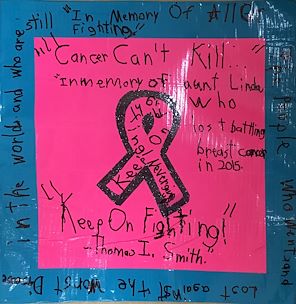 "In Memory Of All
People Who Went and
Lost against the Worst
in the world and who are
still Fighting."
"Cancer Can't Kill...
"In memory of aunt Linda
who
lost battling
breast cancer
in 2015.
Keep
On
"Keep On Fighting!"
-Thomas I. Smith."